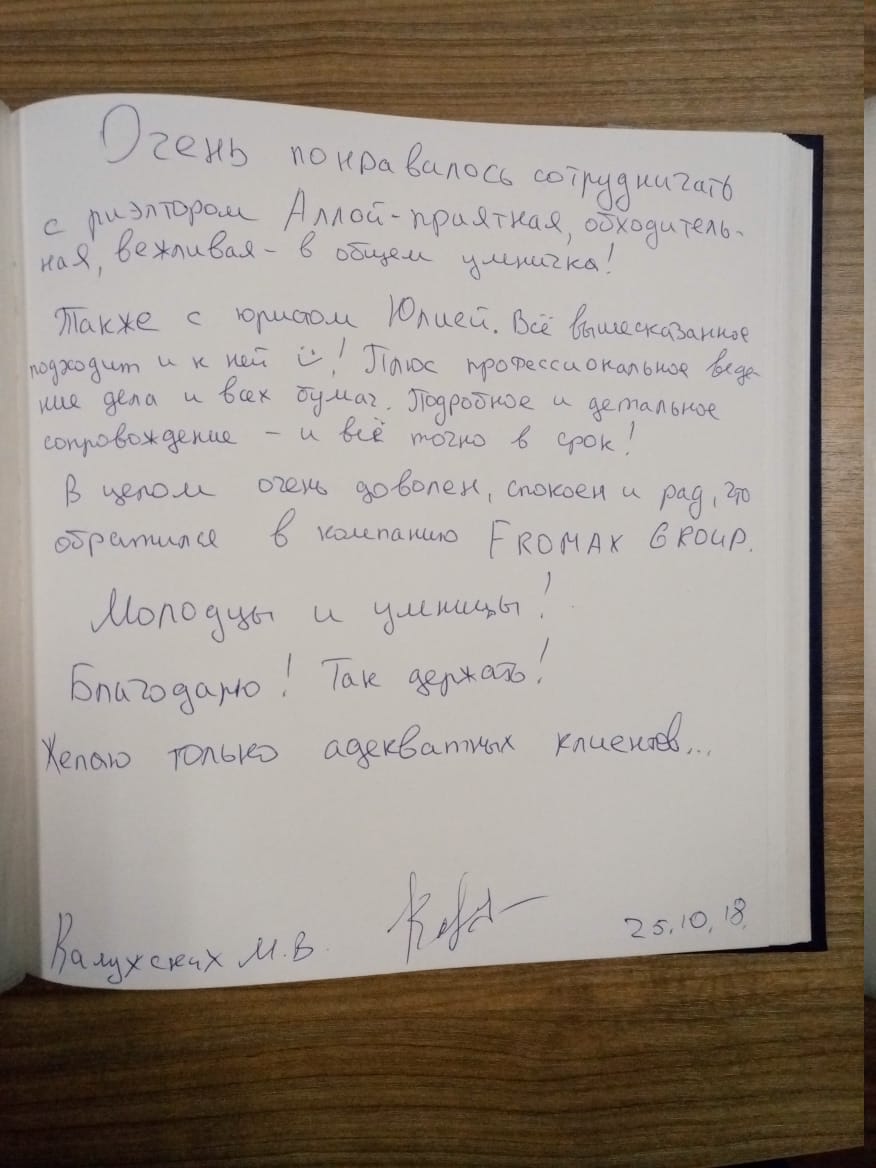 Очень понравилось сотрудничать
с риэлтором Аллой - приятная, обходитель-
ная, вежливая - в общем умничка!
Также с юристом Юлией. Всё вышесказанное
подходит и к ней ☺! Плюс профессиональное веде-
ние дела и всех бумаг. Подробное и детальное
сопровождение - и всё точно в срок!
В целом очень доволен, спокоен и рад, что
обратился в компанию FROMAX GROUP.
Молодцы и умницы!
Благодарю! Так держать!
Желаю только адекватных клиентов...
Калужских М.В. 25.10.18.